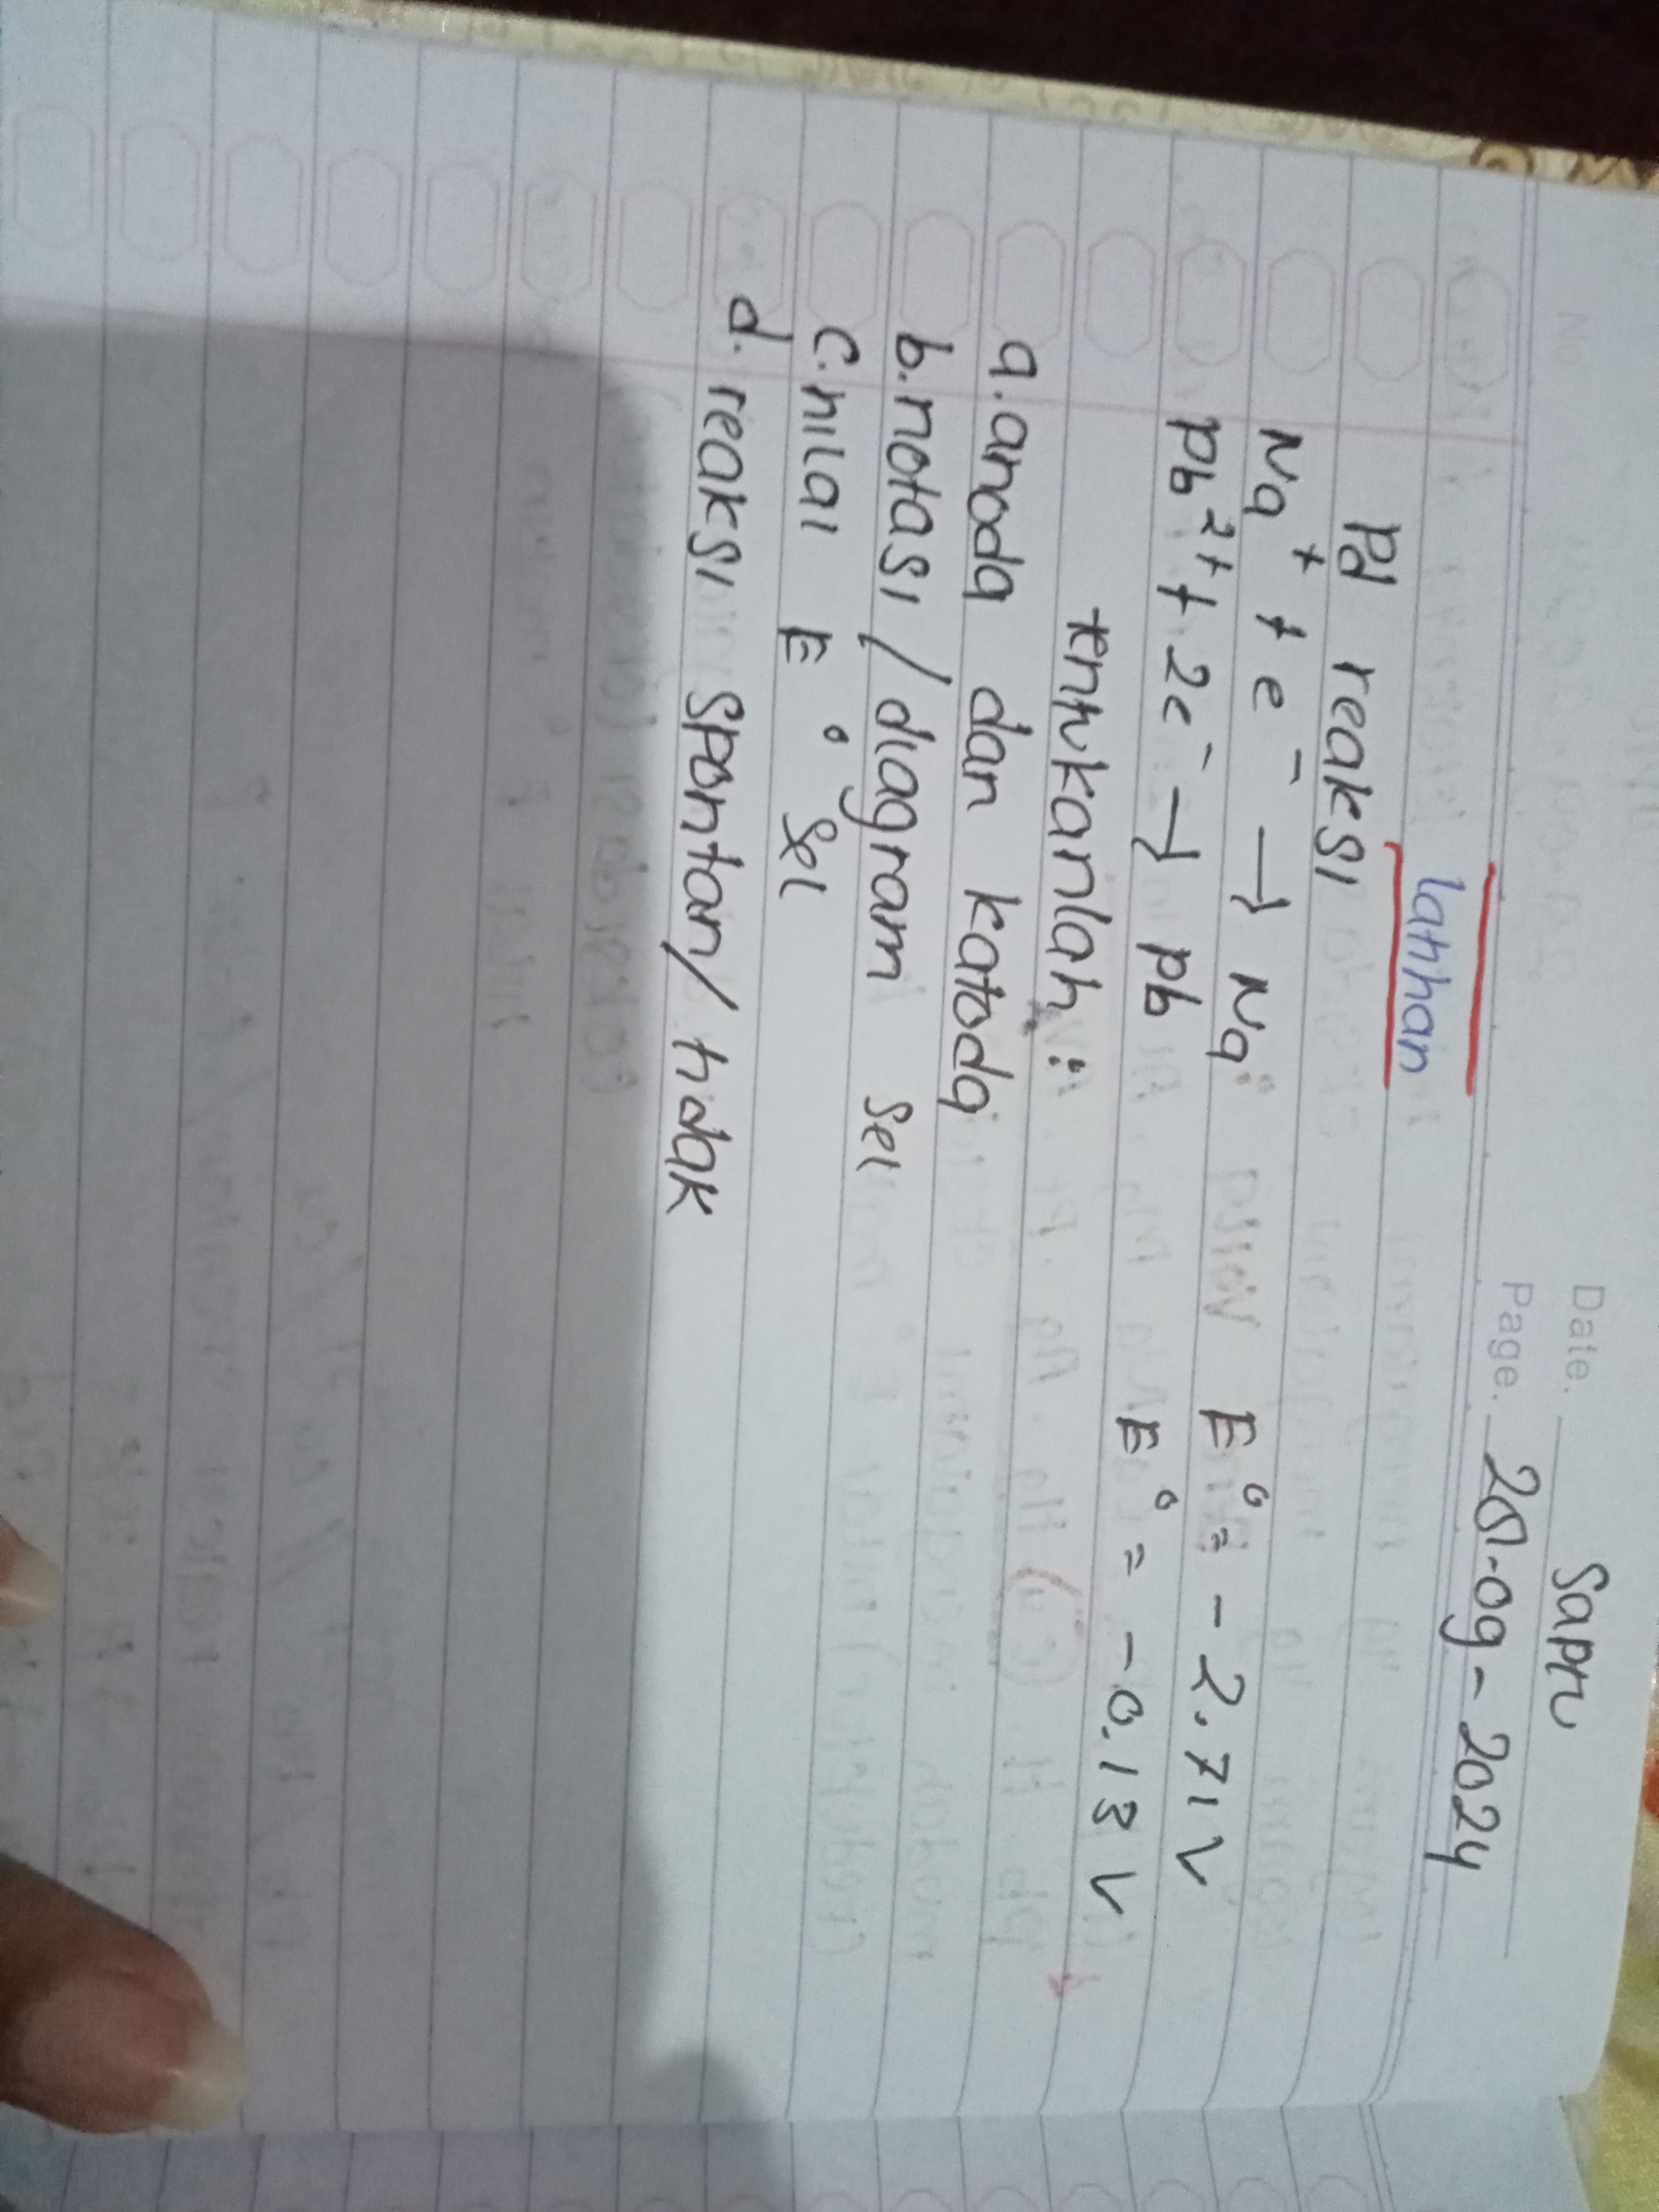 Date. Saptu
Page. 2109-2024
latihan
Pd reaksi
Na⁺ + e⁻ → Na E° = -2.71 V
Pb²⁺ + 2e⁻ → Pb E° = -0.13 V
tentukanlah :
a. anoda dan katoda
b. notasi / diagram sel
c. nilai E° sel
d. reaksi spontan / tidak